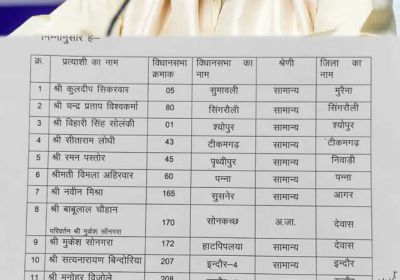 निम्नानुसार है–
क्र. प्रत्याशी का नाम विधानसभा क्रमाक विधानसभा का नाम श्रेणी जिला का नाम
1 श्री कुलदीप सिकरवार 05 सुमावली सामान्य मुरैना
2 श्री चन्द्र प्रताप विश्वकर्मा 80 सिंगरौली सामान्य सिंगरौली
3 श्री विहारी सिंह सोलंकी 01 श्योपुर सामान्य श्योपुर
4 श्री सीताराम लोधी 43 टीकमगढ़ सामान्य टीकमगढ़
5 श्री रमन पस्तोर 45 पृथ्वीपुर सामान्य निवाडी
6 श्रीमती विमला अहिरवार 60 पन्ना सामान्य पन्ना
7 श्री नवीन मिश्रा 165 सुसनेर सामान्य आगर
8 श्री बाबूलाल चौहान
परिवर्तन श्री मुकेश सोनगरा 170 सोनकच्छ अ.जा. देवास
9 श्री मुकेश सोनगरा 172 हाटपिपलया सामान्य देवास
10 श्री सत्यनारायण बिन्दोरिया 207 इन्दौर-4 सामान्य इन्दौर
11 श्री मनोहर 208